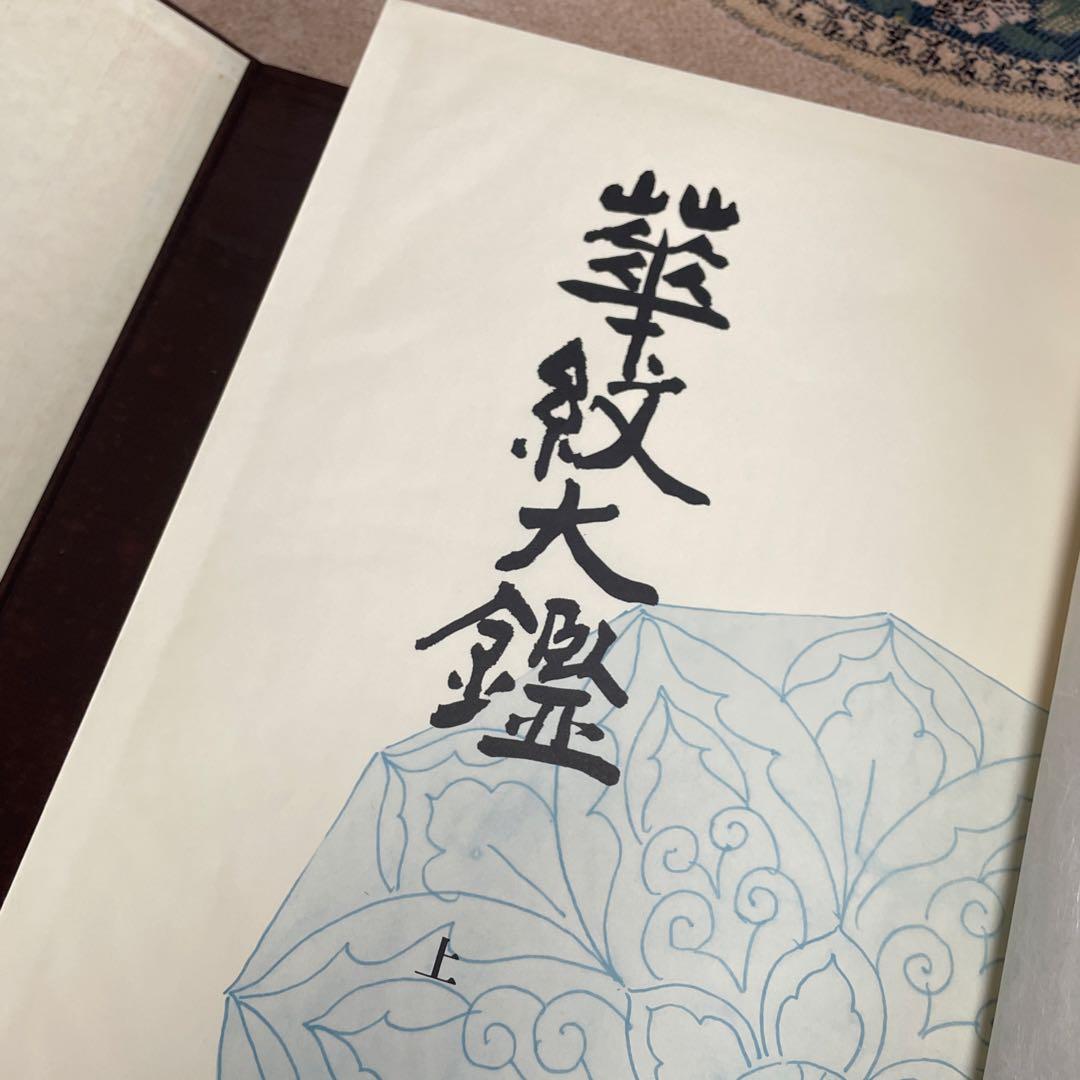 華紋大鑑
上